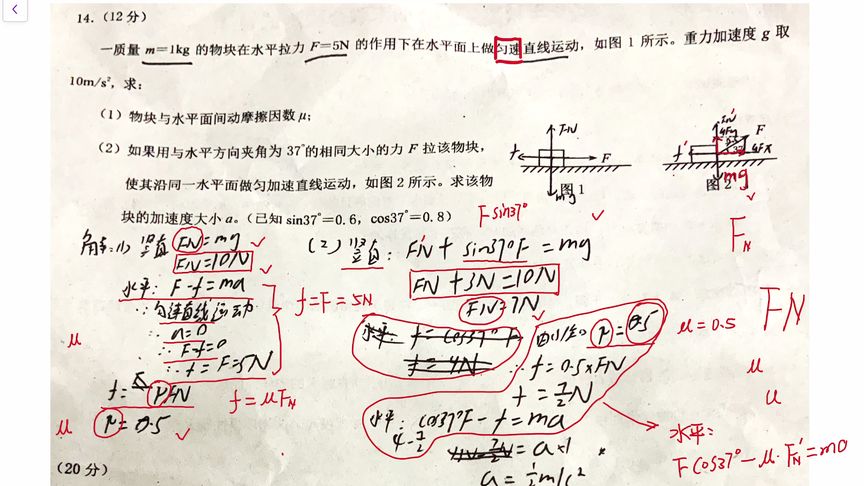 14. (12分)
一质量 m=1kg 的物块在水平拉力 F=5N 的作用下在水平面上做匀速直线运动，如图 1 所示。重力加速度 g 取
10m/s²，求：
(1) 物块与水平面间动摩擦因数 μ;
(2) 如果用与水平方向夹角为 37°的相同大小的力 F 拉该物块，
使其沿同一水平面做匀加速直线运动，如图 2 所示。求该物
块的加速度大小 a。(已知 sin37°=0.6，cos37°=0.8)
FN
f
F
mg
图1
F
f'
mg
图2
Fsin37°
FN
解：(1) 竖直 FN=mg
FN=10N
水平：F-f=ma
∵匀速直线运动
∴a=0
∴F-f=0
∴f=F=5N
f=F=5N
f=μFN
f=μFN
μ
μ=0.5
μ
(2) 竖直：FN+sin37°F=mg
FN+3N=10N
FN=7N
水平 f=cos37°F
f=4N
由(1)知 μ=0.5
∴f=0.5×FN
f=7/2N
水平：cos37°F-f=ma
4-7/2
=a×1
a=1/2m/s²
μ=0.5
FN
μ
u
水平：
Fcos37°-μ·FN'=ma
(20分)